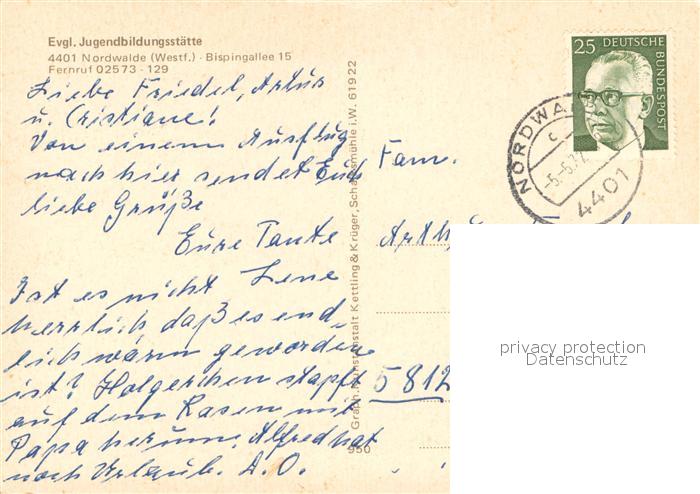 Evgl. Jugendbildungsstätte
4401 Nordwalde (Westf.) · Bispingallee 15
Fernruf 02573 - 129
Liebe Friedel, Artur
u. Cristiane!
Von einem Ausflug
nach hier sendet Euch
liebe Grüße
Eure Tante
Lene
Ist es nicht
herrlich, daß es end-
lich warm geworden
ist? Holgerchen stapft
auf dem Rasen mit
Papa herum. Alfred hat
noch Urlaub. D.O.
Graph. Kunstanstalt Kettling & Krüger, Schalksmühle i.W. 61922
950
Fam.
5812
25 DEUTSCHE
BUNDESPOST
NORDWA
c
-5.-6.72
4401
privacy protection
Datenschutz